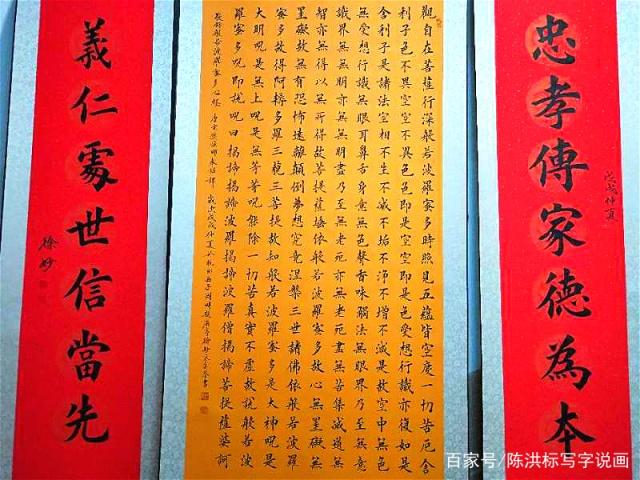 忠孝傳家德為本
戊戌仲夏
觀自在菩薩行深般若波羅蜜多時照見五蘊皆空度一切苦厄舍
利子色不異空空不異色色即是空空即是色受想行識亦復如是
舍利子是諸法空相不生不滅不垢不淨不增不減是故空中無色
無受想行識無眼耳鼻舌身意無色聲香味觸法無眼界乃至無意
識界無無明亦無無明盡乃至無老死亦無老死盡無苦集滅道無
智亦無得以無所得故菩提薩埵依般若波羅蜜多故心無罣礙無
罣礙故無有恐怖遠離顛倒夢想究竟涅槃三世諸佛依般若波羅
蜜多故得阿耨多羅三藐三菩提故知般若波羅蜜多是大神呪是
大明呪是無上呪是無等等呪能除一切苦真實不虛故說般若波
羅蜜多呪即說呪曰揭諦揭諦波羅揭諦波羅僧揭諦菩提薩婆訶
敬錄般若波羅蜜多心經 唐玄奘法師奉詔譯 歲次戊戌仲夏
義仁處世信當先
徐妙
百家号/陈洪标写字说画